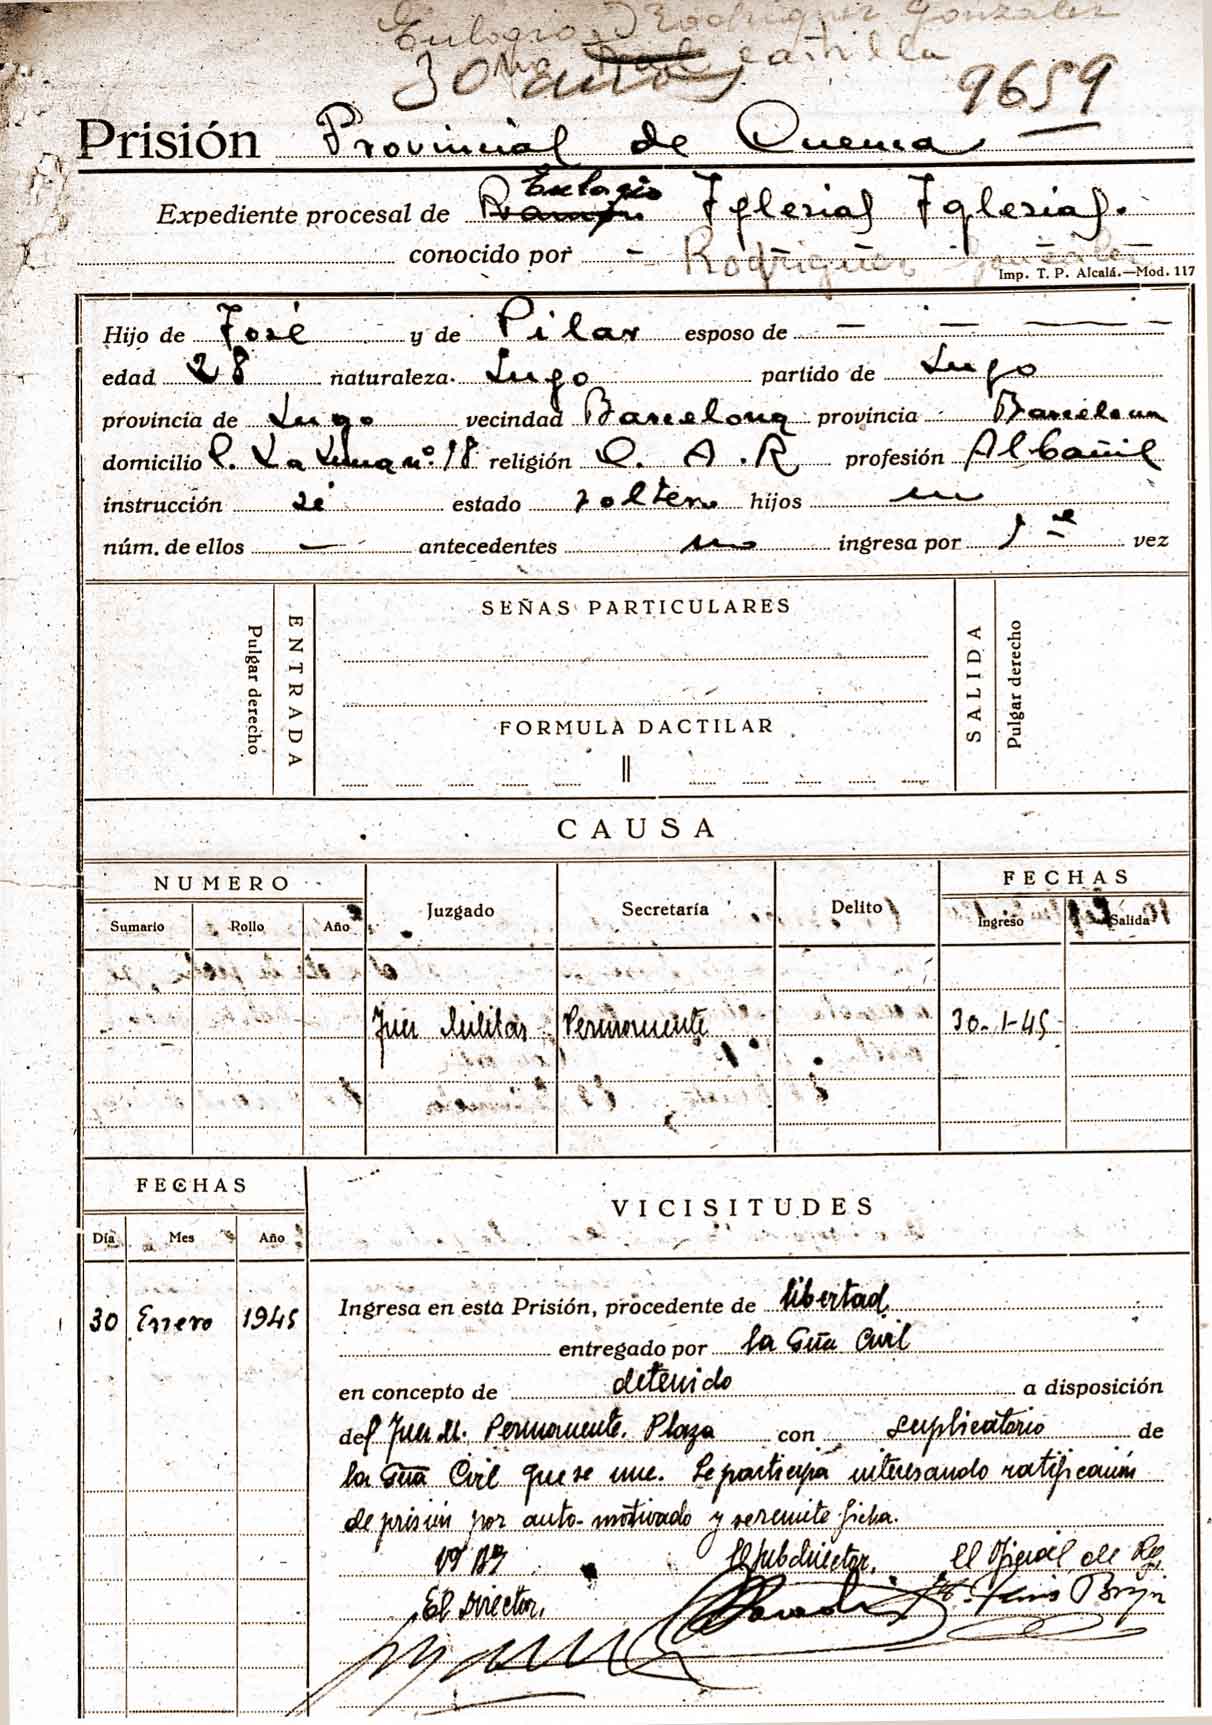 Eulogio Rodriguez Gonzalez
30 años Castilla
9659
Prisión Provincial de Cuenca
Eulogio
Expediente procesal de Ramón Iglesias Iglesias.
conocido por - Rodriguez González
Imp. T. P. Alcalá.—Mod. 117
Hijo de José y de Pilar esposo de — — —
edad 28 naturaleza Lugo partido de Lugo
provincia de Lugo vecindad Barcelona provincia Barcelona
domicilio C. La Luna nº 18 religión C. A. R profesión Albañil
instrucción sí estado soltero hijos no
núm. de ellos — antecedentes no ingresa por 1ª vez
Pulgar derecho
ENTRADA
SEÑAS PARTICULARES
FORMULA DACTILAR
||
SALIDA
Pulgar derecho
CAUSA
NUMERO Juzgado Secretaría Delito FECHAS
Sumario Rollo Año Ingreso Salida
Juez Militar Permanente 30-1-45
FECHAS VICISITUDES
Día Mes Año
30 Enero 1945 Ingresa en esta Prisión, procedente de libertad
entregado por la Gua Civil
en concepto de detenido a disposición
del Juez M. Permanente. Plaza con suplicatorio de
la Gua Civil que se une. Se participa interesando ratificación
de prisión por auto motivado y se remite ficha.
Vº Bº El Subdirector, El Oficial de
El Director,